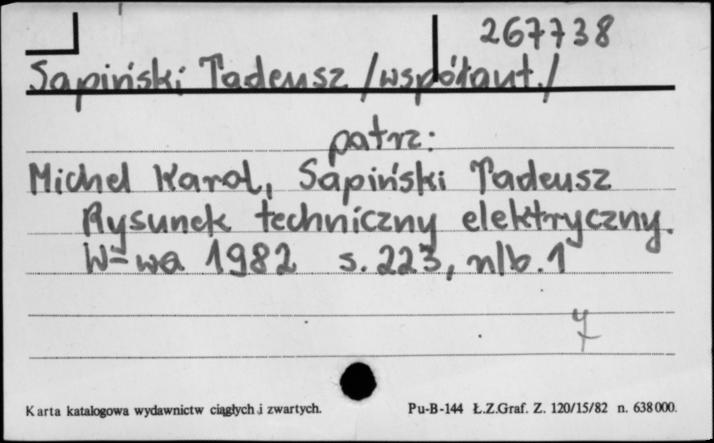 267738
Sapiński Tadeusz /współaut./
patrz:
Michel Karol, Sapiński Tadeusz
Rysunek techniczny elektryczny.
W-wa 1982 s. 223, nlb. 1
Karta katalogowa wydawnictw ciągłych i zwartych.
Pu-B-144 Ł.Z.Graf. Z. 120/15/82 n. 638000.